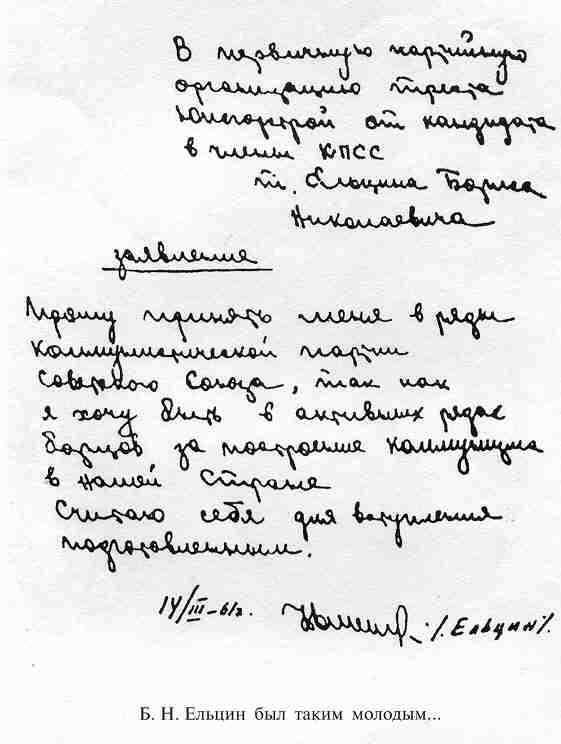 В первичную партийную
организацию треста
Южгорстрой от кандидата
в члены КПСС
т. Ельцина Бориса
Николаевича
заявление
Прошу принять меня в ряды
Коммунистической партии
Советского Союза, так как
я хочу быть в активных рядах
борцов за построение коммунизма
в нашей стране
Считаю себя для вступления
подготовленным.
14/III-61г. /. Ельцин/.
Б. Н. Ельцин был таким молодым...